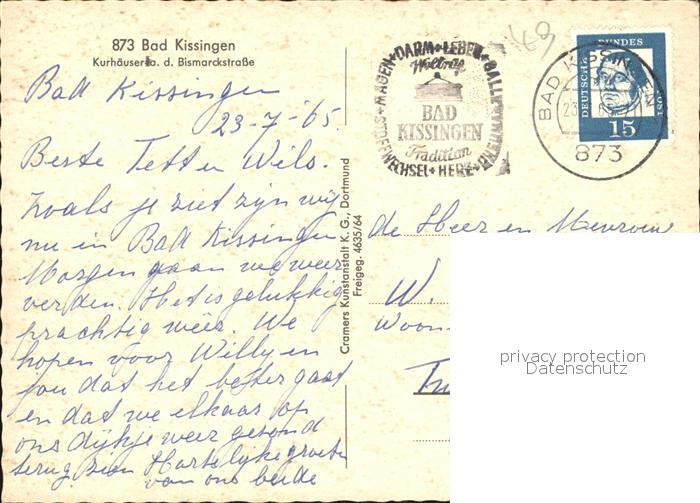 873 Bad Kissingen
Kurhäuser a. d. Bismarckstraße
Bad Kissingen
23-7-'65
Beste Tett en Wils.
Zoals je ziet zijn wij
nu in Bad Kissingen
Morgen gaan we weer
verder. Het is gelukkig
prachtig weer. We
hopen voor Willy en
jou dat het beter gaat
en dat we elkaar op
ons dijkje weer gezond
terug zien Hartelijke groeten
van ons beide
Cramers Kunstanstalt K. G., Dortmund
Freigeg. 4635/64
MAGEN + DARM + LEBER + GALLE
STOFFWECHSEL + HERZ + RHEUMA
Weltruf
BAD
KISSINGEN
Tradition
49
BAD KISSINGEN
23
873
DEUTSCHE BUNDESPOST
15
de Heer en Mevrouw
W.
Woon
privacy protection
Datenschutz